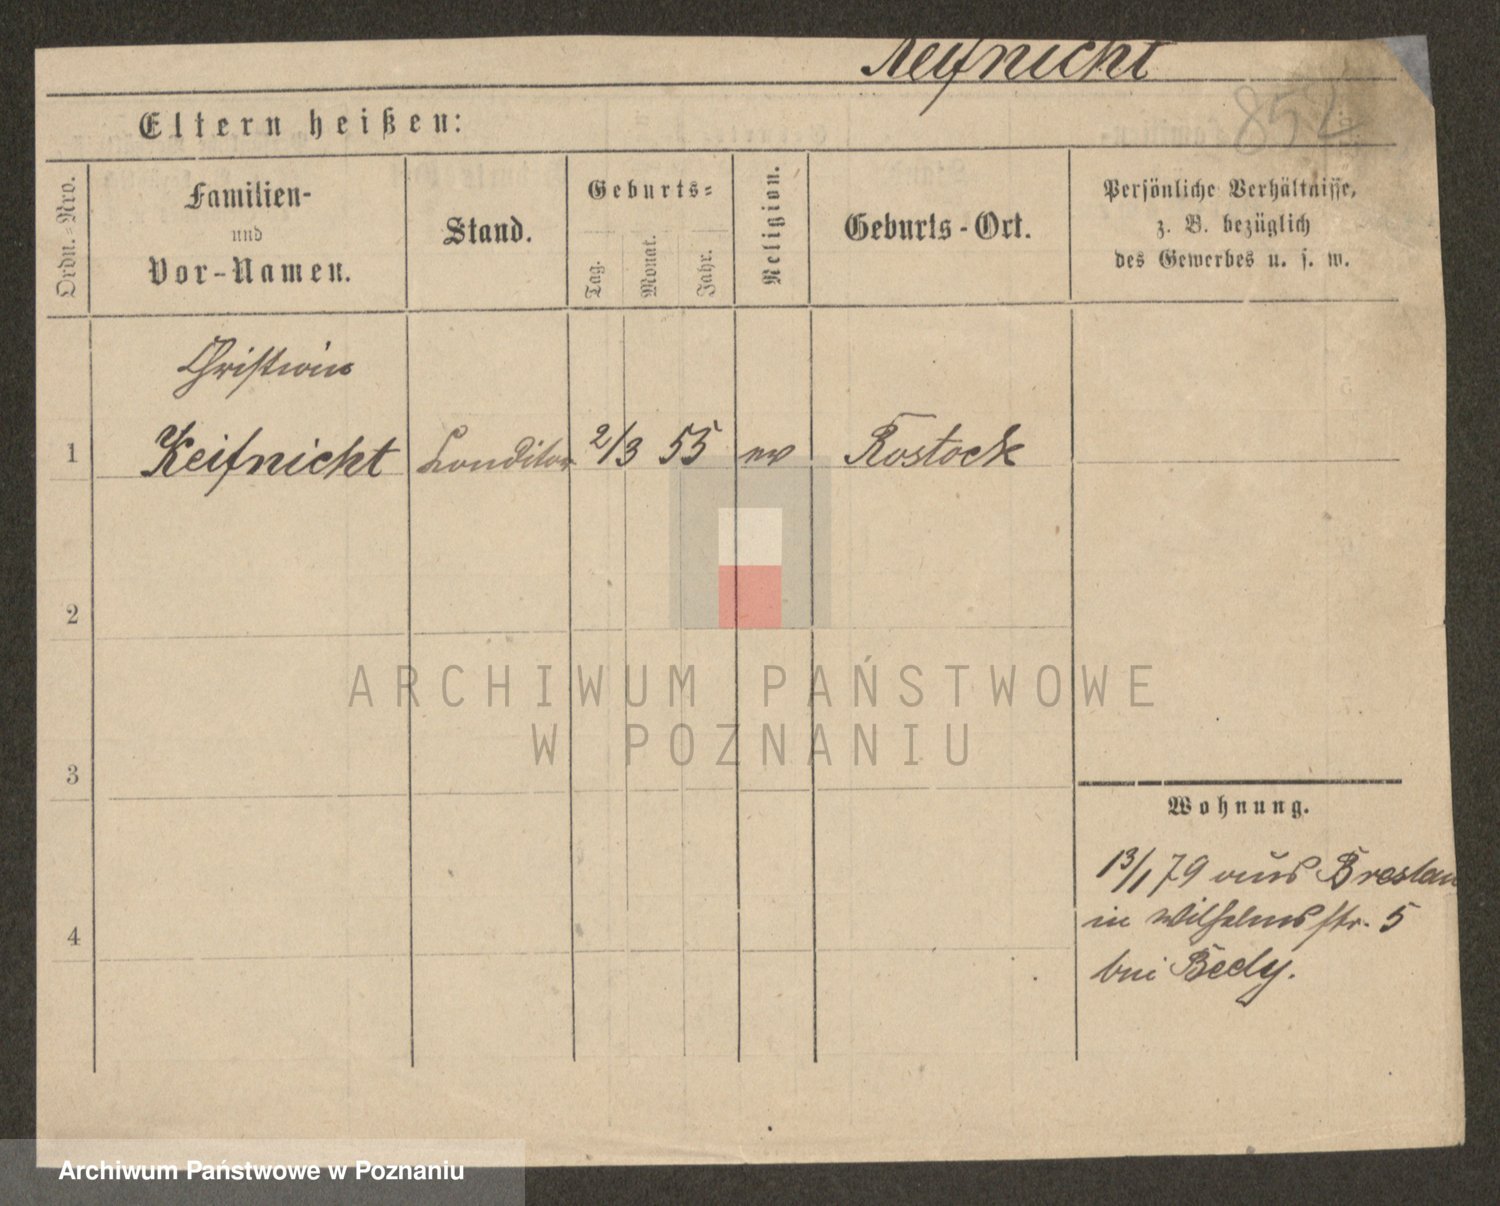 Keifnicht
852
Eltern heißen:
Ordn.=Nro.
Familien-
und
Vor-Namen.
Stand.
Geburts=
Tag.
Monat.
Jahr.
Religion.
Geburts-Ort.
Persönliche Verhältnisse,
z. B. bezüglich
des Gewerbes u. s. w.
Christian
1 Keifnicht Conditor 2/3 55 ev Rostock
2
ARCHIWUM PAŃSTWOWE
W POZNANIU
3
Wohnung.
13/1 79 aus Breslau
in Wilhelmsstr. 5
4
bei Beely.
Archiwum Państwowe w Poznaniu